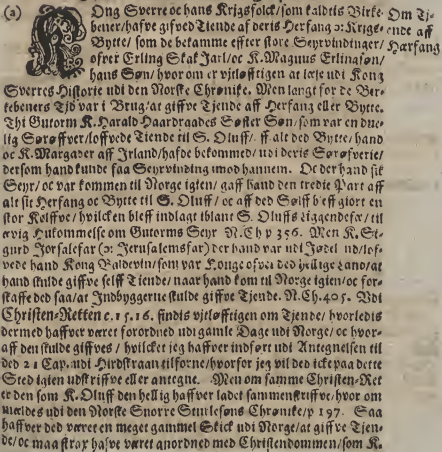 (a) KOng Sverre oc hans Krjgsfolck/som kaldtis Birke-
bener/hafve gifved Tiende af deris Herfang ɔ: Krigs-
Bytte/som de bekamme effter store Seyrvindinger/
ofver Erling Skaf Jarl/oc K. Magnus Erlingsøn/
hans Søn/hvor om er vjtløfftigen at læse udi Kong
Sverres Historie udi den Norske Chrønike. Men langt for de Ber-
kebeners Tjd var i Brug/at giffve Tjende aff Herfang eller Bytte.
Thi Gutorm K. Harald Haardraades Søster Søn/som var en due-
lig Sørøffver/loffvede Tiende til S. Oluff/ aff alt ded Bytte/hand
oc K. Margader aff Jrland/hafde bekommed/udi deris Sørøfverie/
dersom hand kunde faa Seyrvinding imod hannem. Oc der hand fik
Seyr/oc var kommen til Norge igien/gaff hand den tredie Part aff
alt sit Herfang oc Bytte til S. Oluff/ oc aff ded Sølff bleff giort en
stor Kalffve/hvilcken bleff indlagt iblant S. Oluffs Liggendefæ/til
ævig Hukommelse om Gutorms Seyr N. Ch p 356. Men K. Si-
gurd Jorsalefar (ɔ: Jerusalemsfar) der hand var udi Jødel nd/lof-
vede hand Kong Baldevin/som var Konge ofver ded hellige Land/at
hand skulde giffve self Tiende/naar hand kom til Norge igien/oc for-
skaffe ded saa/at Indbyggerne skulde giffve Tjende. N. Ch. 405. Udi
Christen-Retten c. 15. 16. findis vjtløfftigen om Tjende/hvorledis
der med haffver været forordned udi gamle Dage udi Norge/oc hvor-
aff den skulde giffves/ hvilcket jeg haffver indført udi Antegnelsen til
ded 21 Cap. udi Hirdskraan tilforne/hvorfor jeg vil ded icke paa dette
Sted igien udskriffve eller antegne. Men om samme Christen-Ret
er den som K. Oluff den hellig haffver ladet sammenskriffve/hvor om
mældes udi den Norske Snorre Sturlesøns Chrønike/p 197. Saa
haffver ded været en meget gammel Skick udi Norge/at giffve Tien-
de/oc maa strax hafve været anordned med Christendommen/som K.
Om Tj-
ende aff
Hærfang